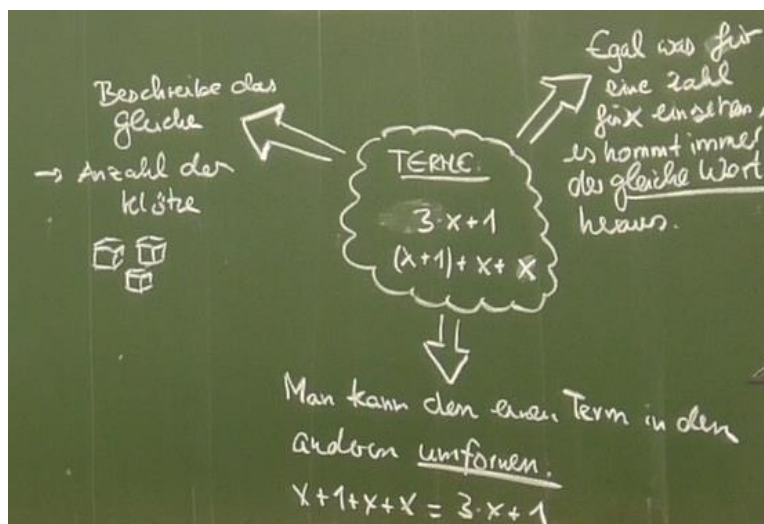 Beschreibe das
gleiche
→ Anzahl der
Klötze
TERME.
3·x+1
(x+1)+x+x
Egal was für
eine Zahl
für x einsetzen,
es kommt immer
der gleiche Wert
heraus.
Man kann den einen Term in den
anderen umformen.
x+1+x+x = 3·x+1